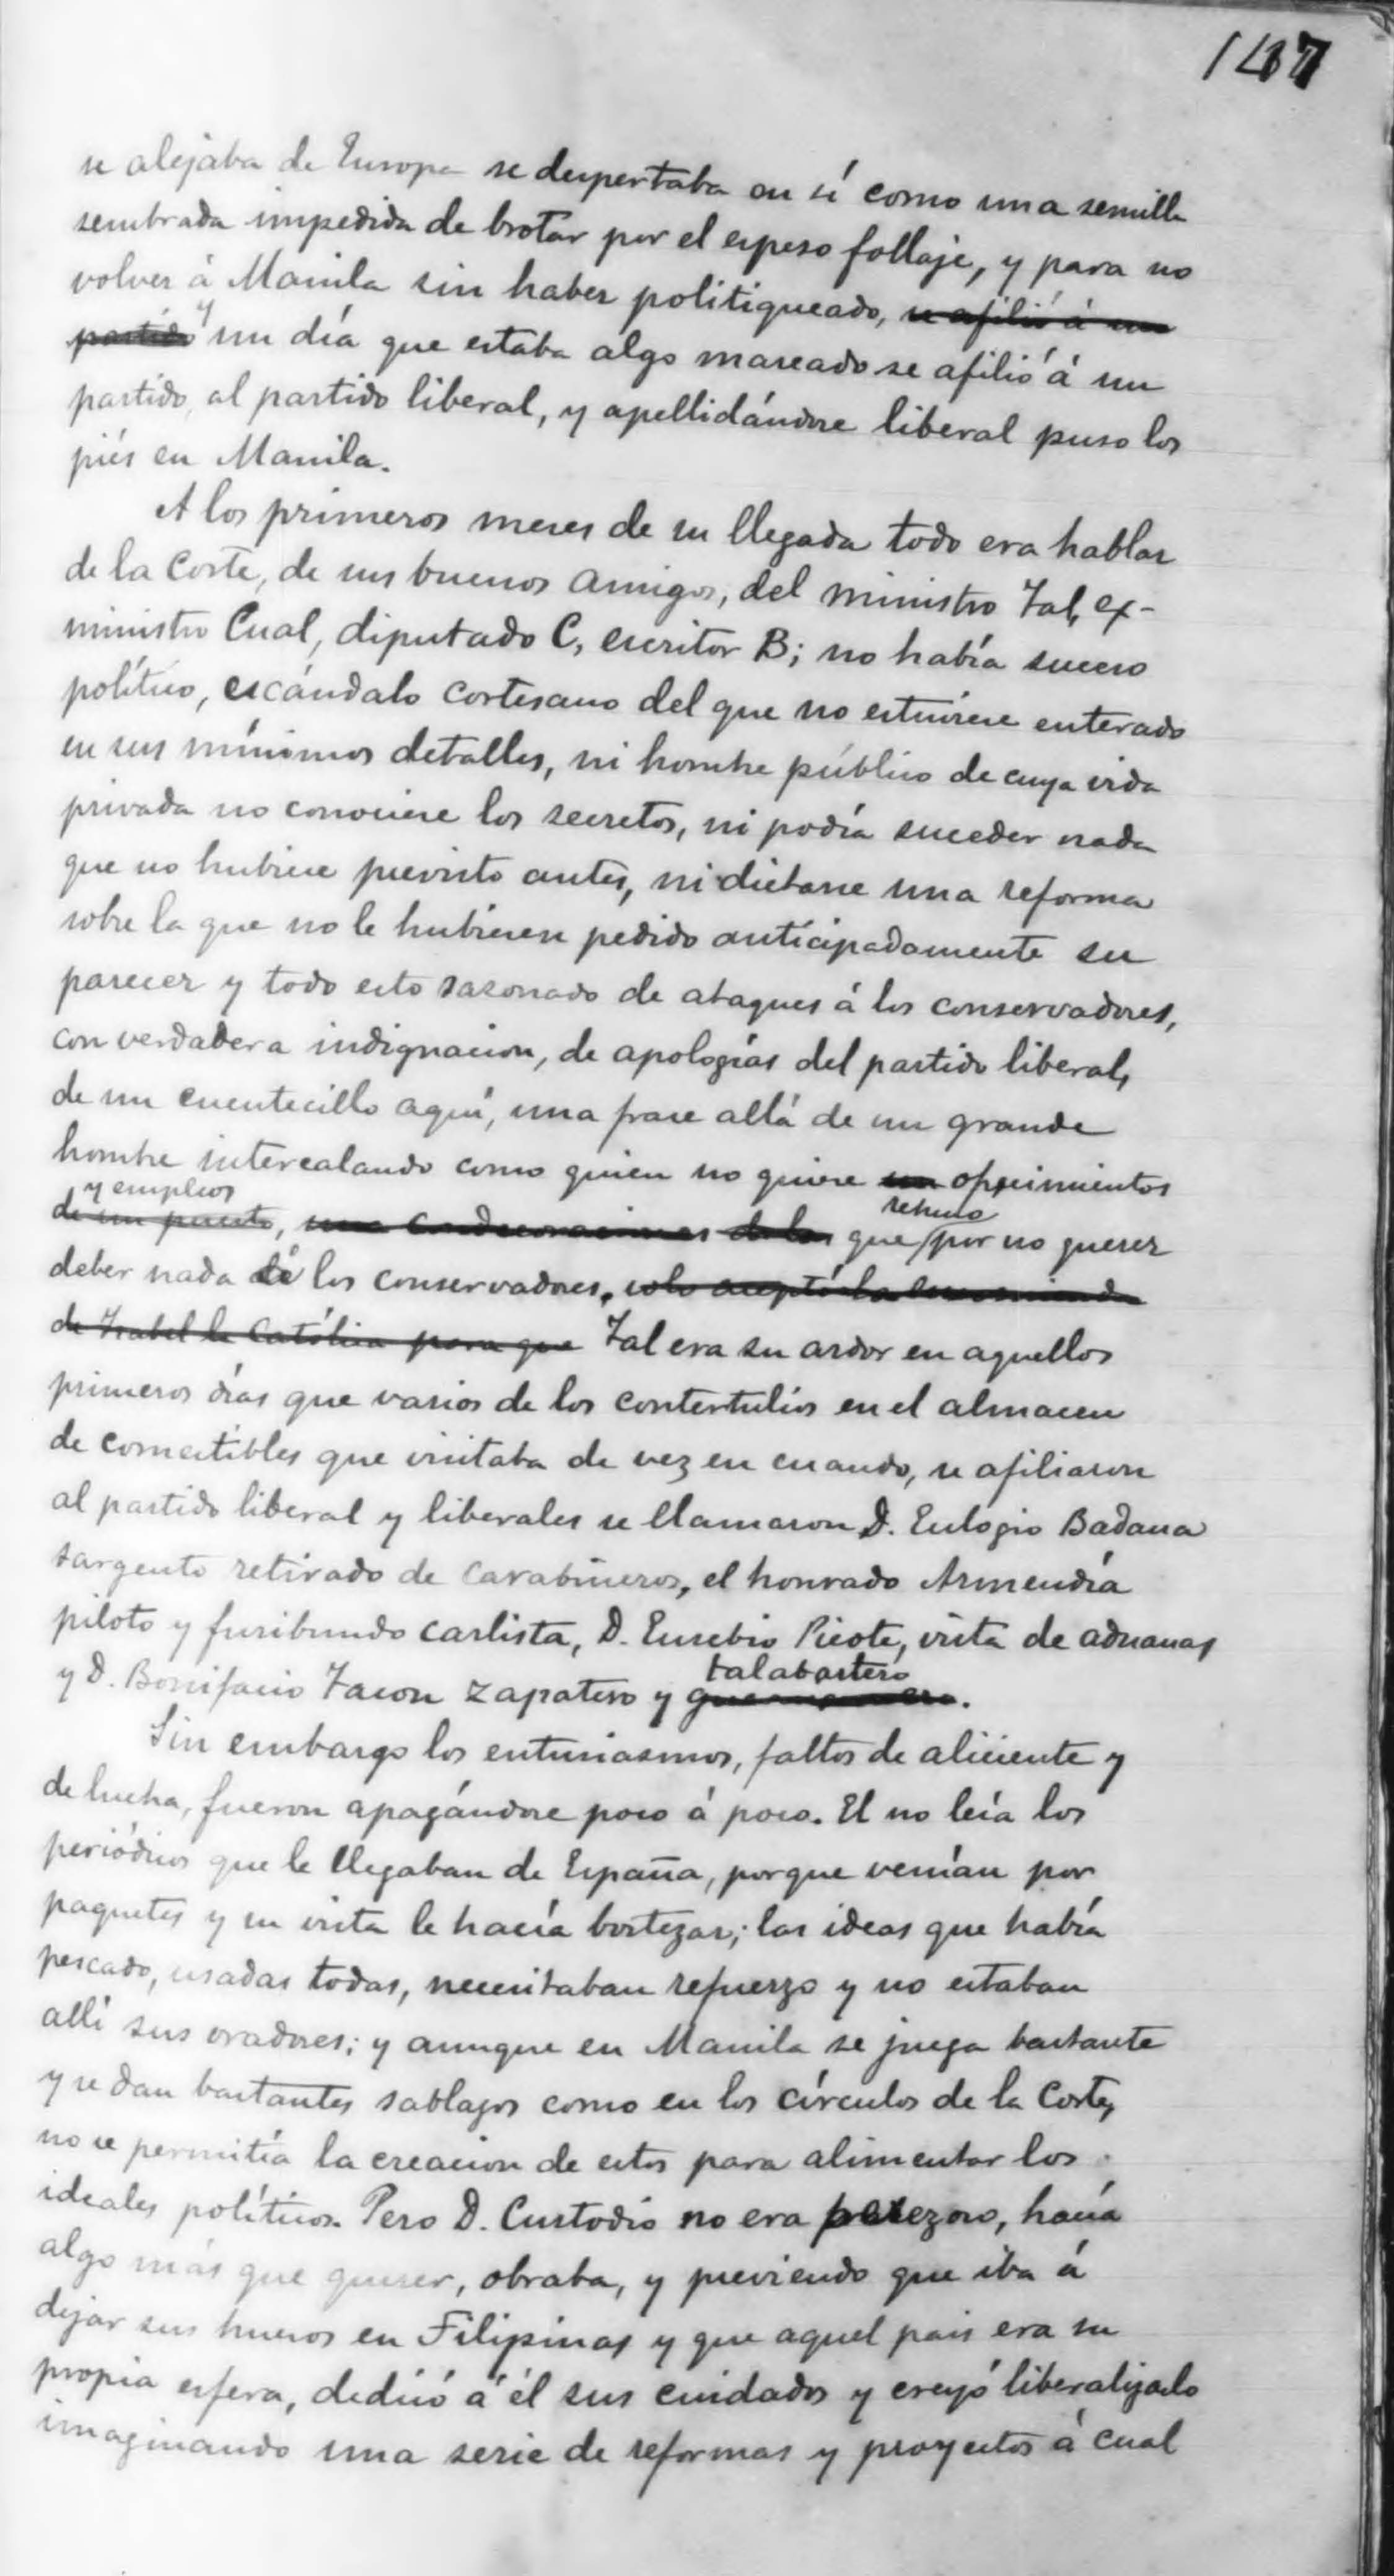 147
se alejaba de Europa se despertaba en sí como una semilla
sembrada impedida de brotar por el espeso follaje, y para no
volver á Manila sin haber politiqueado, se afilió á un
partido y un día que estaba algo mareado se afilió á un
partido, al partido liberal, y apellidándose liberal puso los
piés en Manila.
A los primeros meses de su llegada todo era hablar
de la Corte, de sus buenos amigos, del ministro Tal, ex-
ministro Cual, diputado C, escritor B; no había suceso
político, escándalo cortesano del que no estuviese enterado
en sus mínimos detalles, ni hombre público de cuya vida
privada no conociese los secretos, ni podía suceder nada
que no hubiese previsto antes, ni dictarse una reforma
sobre la que no le hubiesen pedido anticipadamente su
parecer y todo esto sazonado de ataques á los conservadores,
con verdadera indignacion, de apologías del partido liberal,
de un cuentecillo aquí, una frase allá de un grande
hombre intercalando como quien no quiere un ofrecimientos
y empleos
de un puesto, una condecoraciones de las que rehusó por no querer
deber nada á los conservadores. solo aceptó la encomienda
de Isabel la Católica para que Tal era su ardor en aquellos
primeros días que varios de los contertulios en el almacen
de comestibles que visitaba de vez en cuando, se afiliaron
al partido liberal y liberales se llamaron D. Eulogio Badana
sargento retirado de carabineros, el honrado Armendía
piloto y furibundo carlista, D. Eusebio Picote, vista de aduanas
y D. Bonifacio Tacon zapatero y talabartero.
Sin embargo los entusiasmos, faltos de aliciente y
de lucha, fueron apagándose poco á poco. El no leía los
periódicos que le llegaban de España, porque venían por
paquetes y su vista le hacía bostezar; las ideas que había
pescado, usadas todas, necesitaban refuerzo y no estaban
allí sus oradores; y aunque en Manila se juega bastante
y se dan bastantes sablazos como en los círculos de la Corte,
no se permitía la creacion de estos para alimentar los
ideales políticos. Pero D. Custodio no era perezoso, hacía
algo más que querer, obraba, y previendo que iba á
dejar sus huesos en Filipinas y que aquel pais era su
propia esfera, dedicó á él sus cuidados y creyó liberalizarlo
imaginando una serie de reformas y proyectos á cual